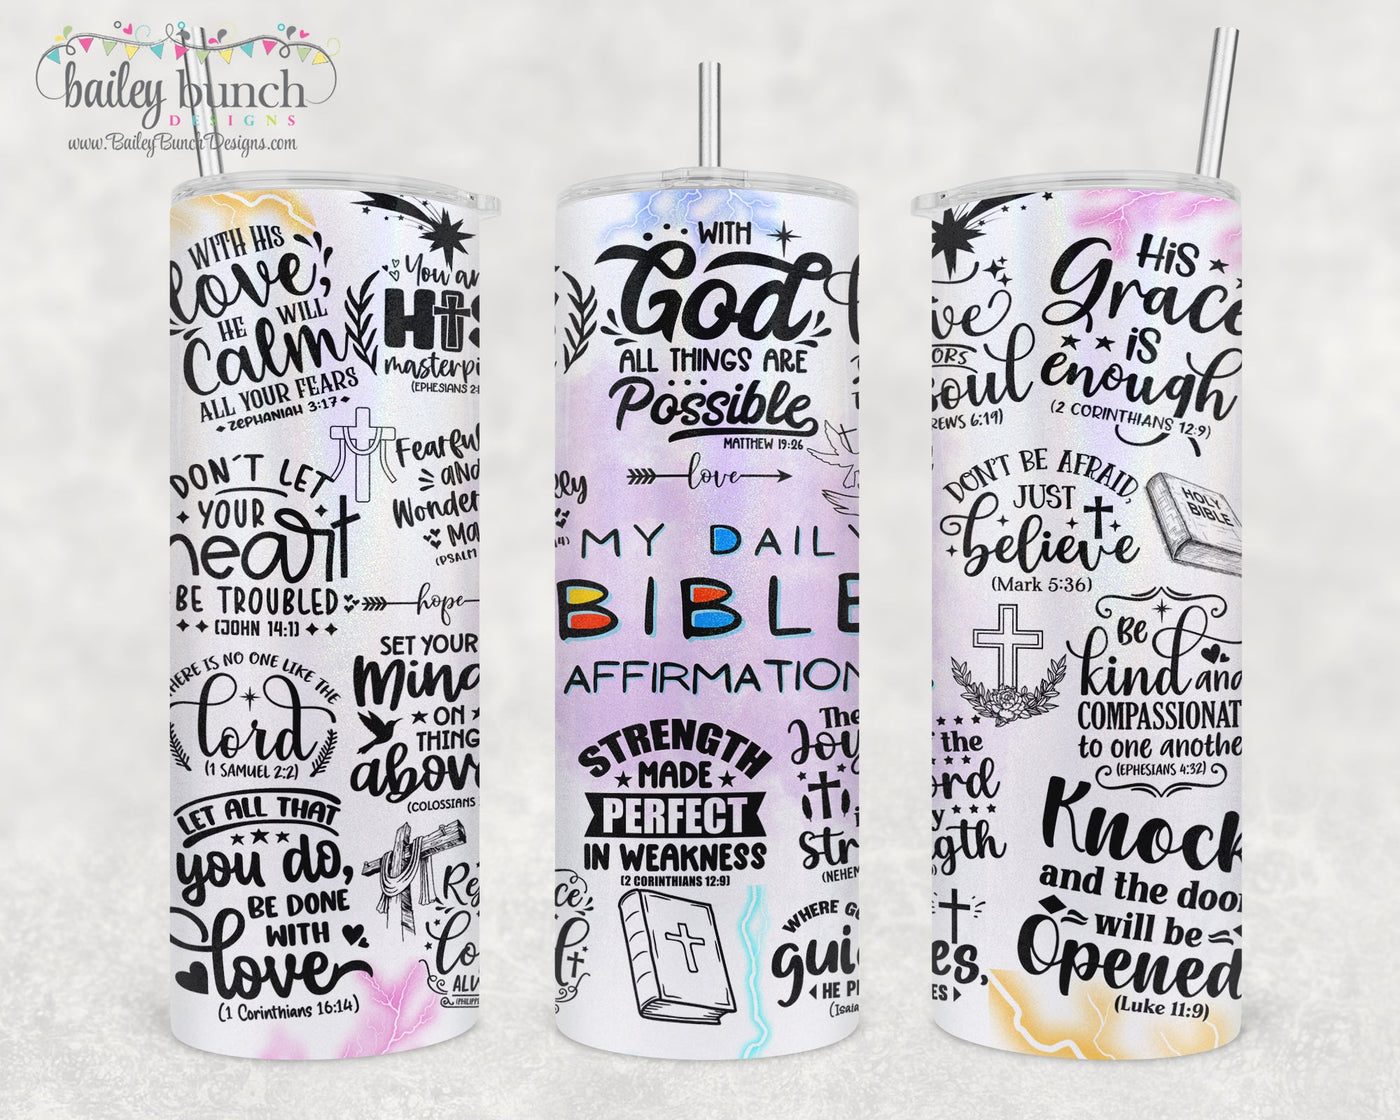 bailey bunch
DESIGNS
www.BaileyBunchDesigns.com
WITH HIS
love,
HE WILL
Calm
ALL YOUR FEARS
ZEPHANIAH 3:17
You ar
HIS
masterpi
(EPHESIANS 2:
Fearful
AND
Wonder
Ma
(PSALM
DON'T LET
YOUR
heart
BE TROUBLED
(JOHN 14:1)
hope
HERE IS NO ONE LIKE THE
Lord
(1 SAMUEL 2:2)
SET YOUR
Mind
ON
THING
above
(COLOSSIANS
LET ALL THAT
you do,
BE DONE
WITH
love
(1 Corinthians 16:14)
Rej
ALW
(PHILIPP
WITH
God
ALL THINGS ARE
Possible
MATTHEW 19:26
love
MY DAILY
BIBLE
AFFIRMATION
STRENGTH
MADE
PERFECT
IN WEAKNESS
(2 CORINTHIANS 12:9)
The
Joy
i
Str
(NEHEM
WHERE GO
gui
HE P
(Isaia
ve
ORS
soul
REWS 6:19)
HiS
Grace
iS
enough
(2 CORINTHIANS 12:9)
DON'T BE AFRAID,
JUST
believe
(Mark 5:36)
HOLY
BIBLE
Be
kind and
COMPASSIONAT
to one anothe
(EPHESIANS 4:32)
the
ord
y
gth
es,
ES
Knock
and the door
will be
Opened
(Luke 11:9)